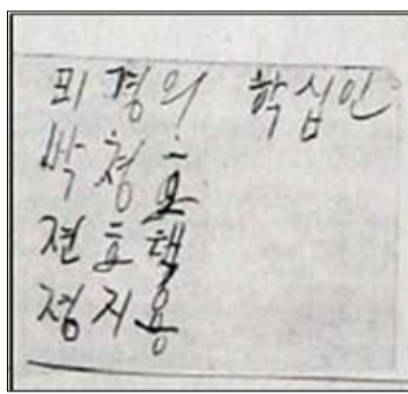 피경의 학십인
박청호
전호책
정지용